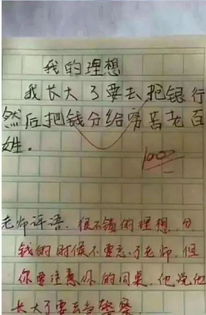 我的理想
我长大了要去把银行
然后把钱分给穷苦老百
姓。
100分
老师评语，很不错的理想，分
钱的时候不要忘了老师，但
你要注意你的同桌，他说他
长大了要去当警察